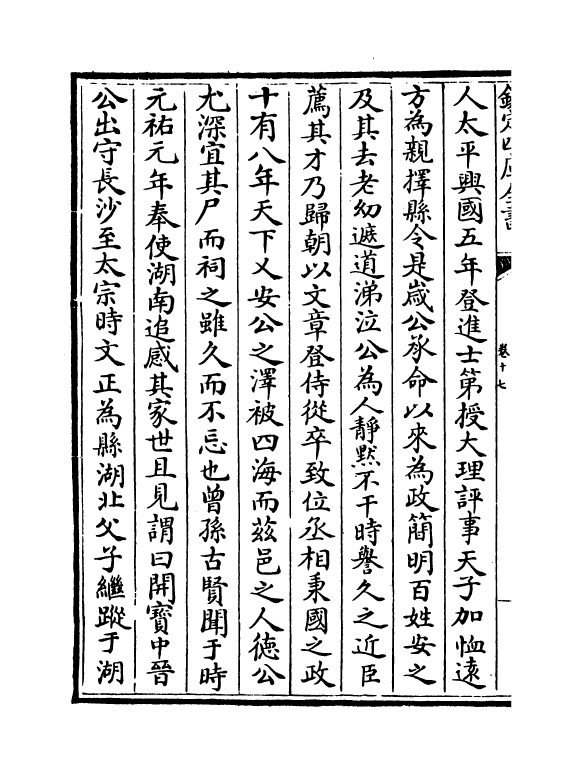 欽定四庫全書
卷十七
人太平興國五年登進士第授大理評事天子加恤遠
方為親擇縣令是嵗公承命以來為政簡明百姓安之
及其去老幼遮道涕泣公為人靜黙不干時譽久之近臣
薦其才乃歸朝以文章登侍從卒致位丞相秉國之政
十有八年天下乂安公之澤被四海而兹邑之人徳公
尤深宜其尸而祠之雖久而不忘也曾孫古賢聞于時
元祐元年奉使湖南追感其家世且見謂曰開寳中晉
公出守長沙至太宗時文正為縣湖北父子繼蹤于湖